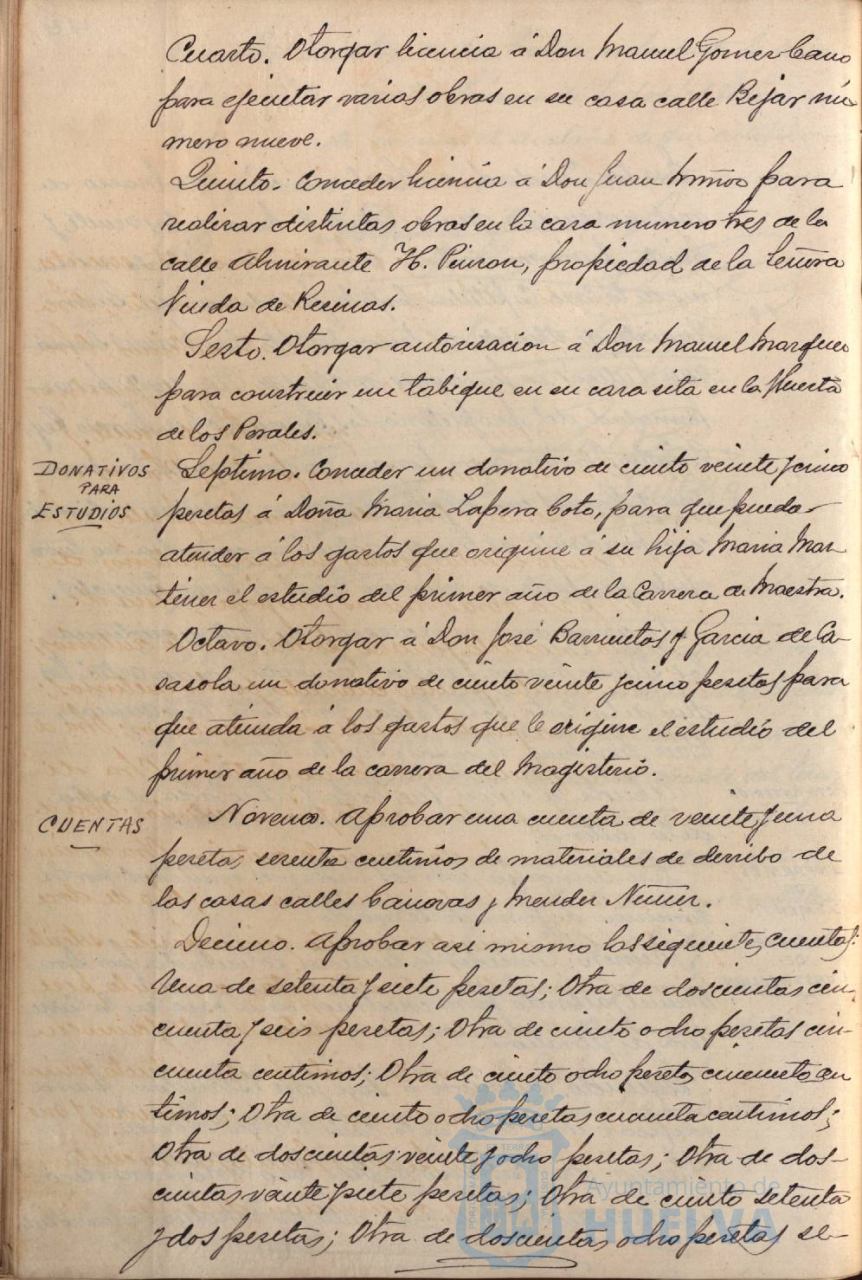 Cuarto. Otorgar licencia á Don Manuel Gomez Cano
para ejecutar varias obras en su casa calle Bejar nú-
mero nueve.
Quinto. Conceder licencia á Don Juan para
realizar distintas obras en la casa numero tres de la
calle Almirante H. Pinzon, propiedad de la Señora
Viuda de Resinas.
Sesto. Otorgar autorizacion á Don Manuel Marquez
para construir un tabique en su casa sita en la Huerta
de los Perales.
DONATIVOS
PARA
ESTUDIOS
Septimo. Conceder un donativo de ciento veinte y cinco
pesetas á Doña Maria Lapera Coto, para que pueda
atender á los gastos que origine á su hija Maria Mar-
tinez el estudio del primer año de la Carrera de Maestra.
Octavo. Otorgar á Don José Barrientos y Garcia de Ca-
sasola un donativo de ciento veinte y cinco pesetas para
que atienda á los gastos que le origine el estudio del
primer año de la carrera del Magisterio.
CUENTAS
Noveno. Aprobar una cuenta de veinte y una
pesetas sesenta centimos de materiales de derribo de
las casas calles Canovas y Mendez Nuñez.
Decimo. Aprobar asi mismo las siguientes cuentas:
Una de setenta y siete pesetas; Otra de doscientas cin-
cuenta y seis pesetas; Otra de ciento ocho pesetas cin-
cuenta centimos; Otra de ciento ocho pesetas cincuenta cen
timos; Otra de ciento ocho pesetas cuarenta centimos;
Otra de doscientas veinte y ocho pesetas; Otra de dos-
cientas veinte y siete pesetas; Otra de ciento setenta
y dos pesetas; Otra de doscientas ocho pesetas se-
Ayuntamiento de
HUELVA